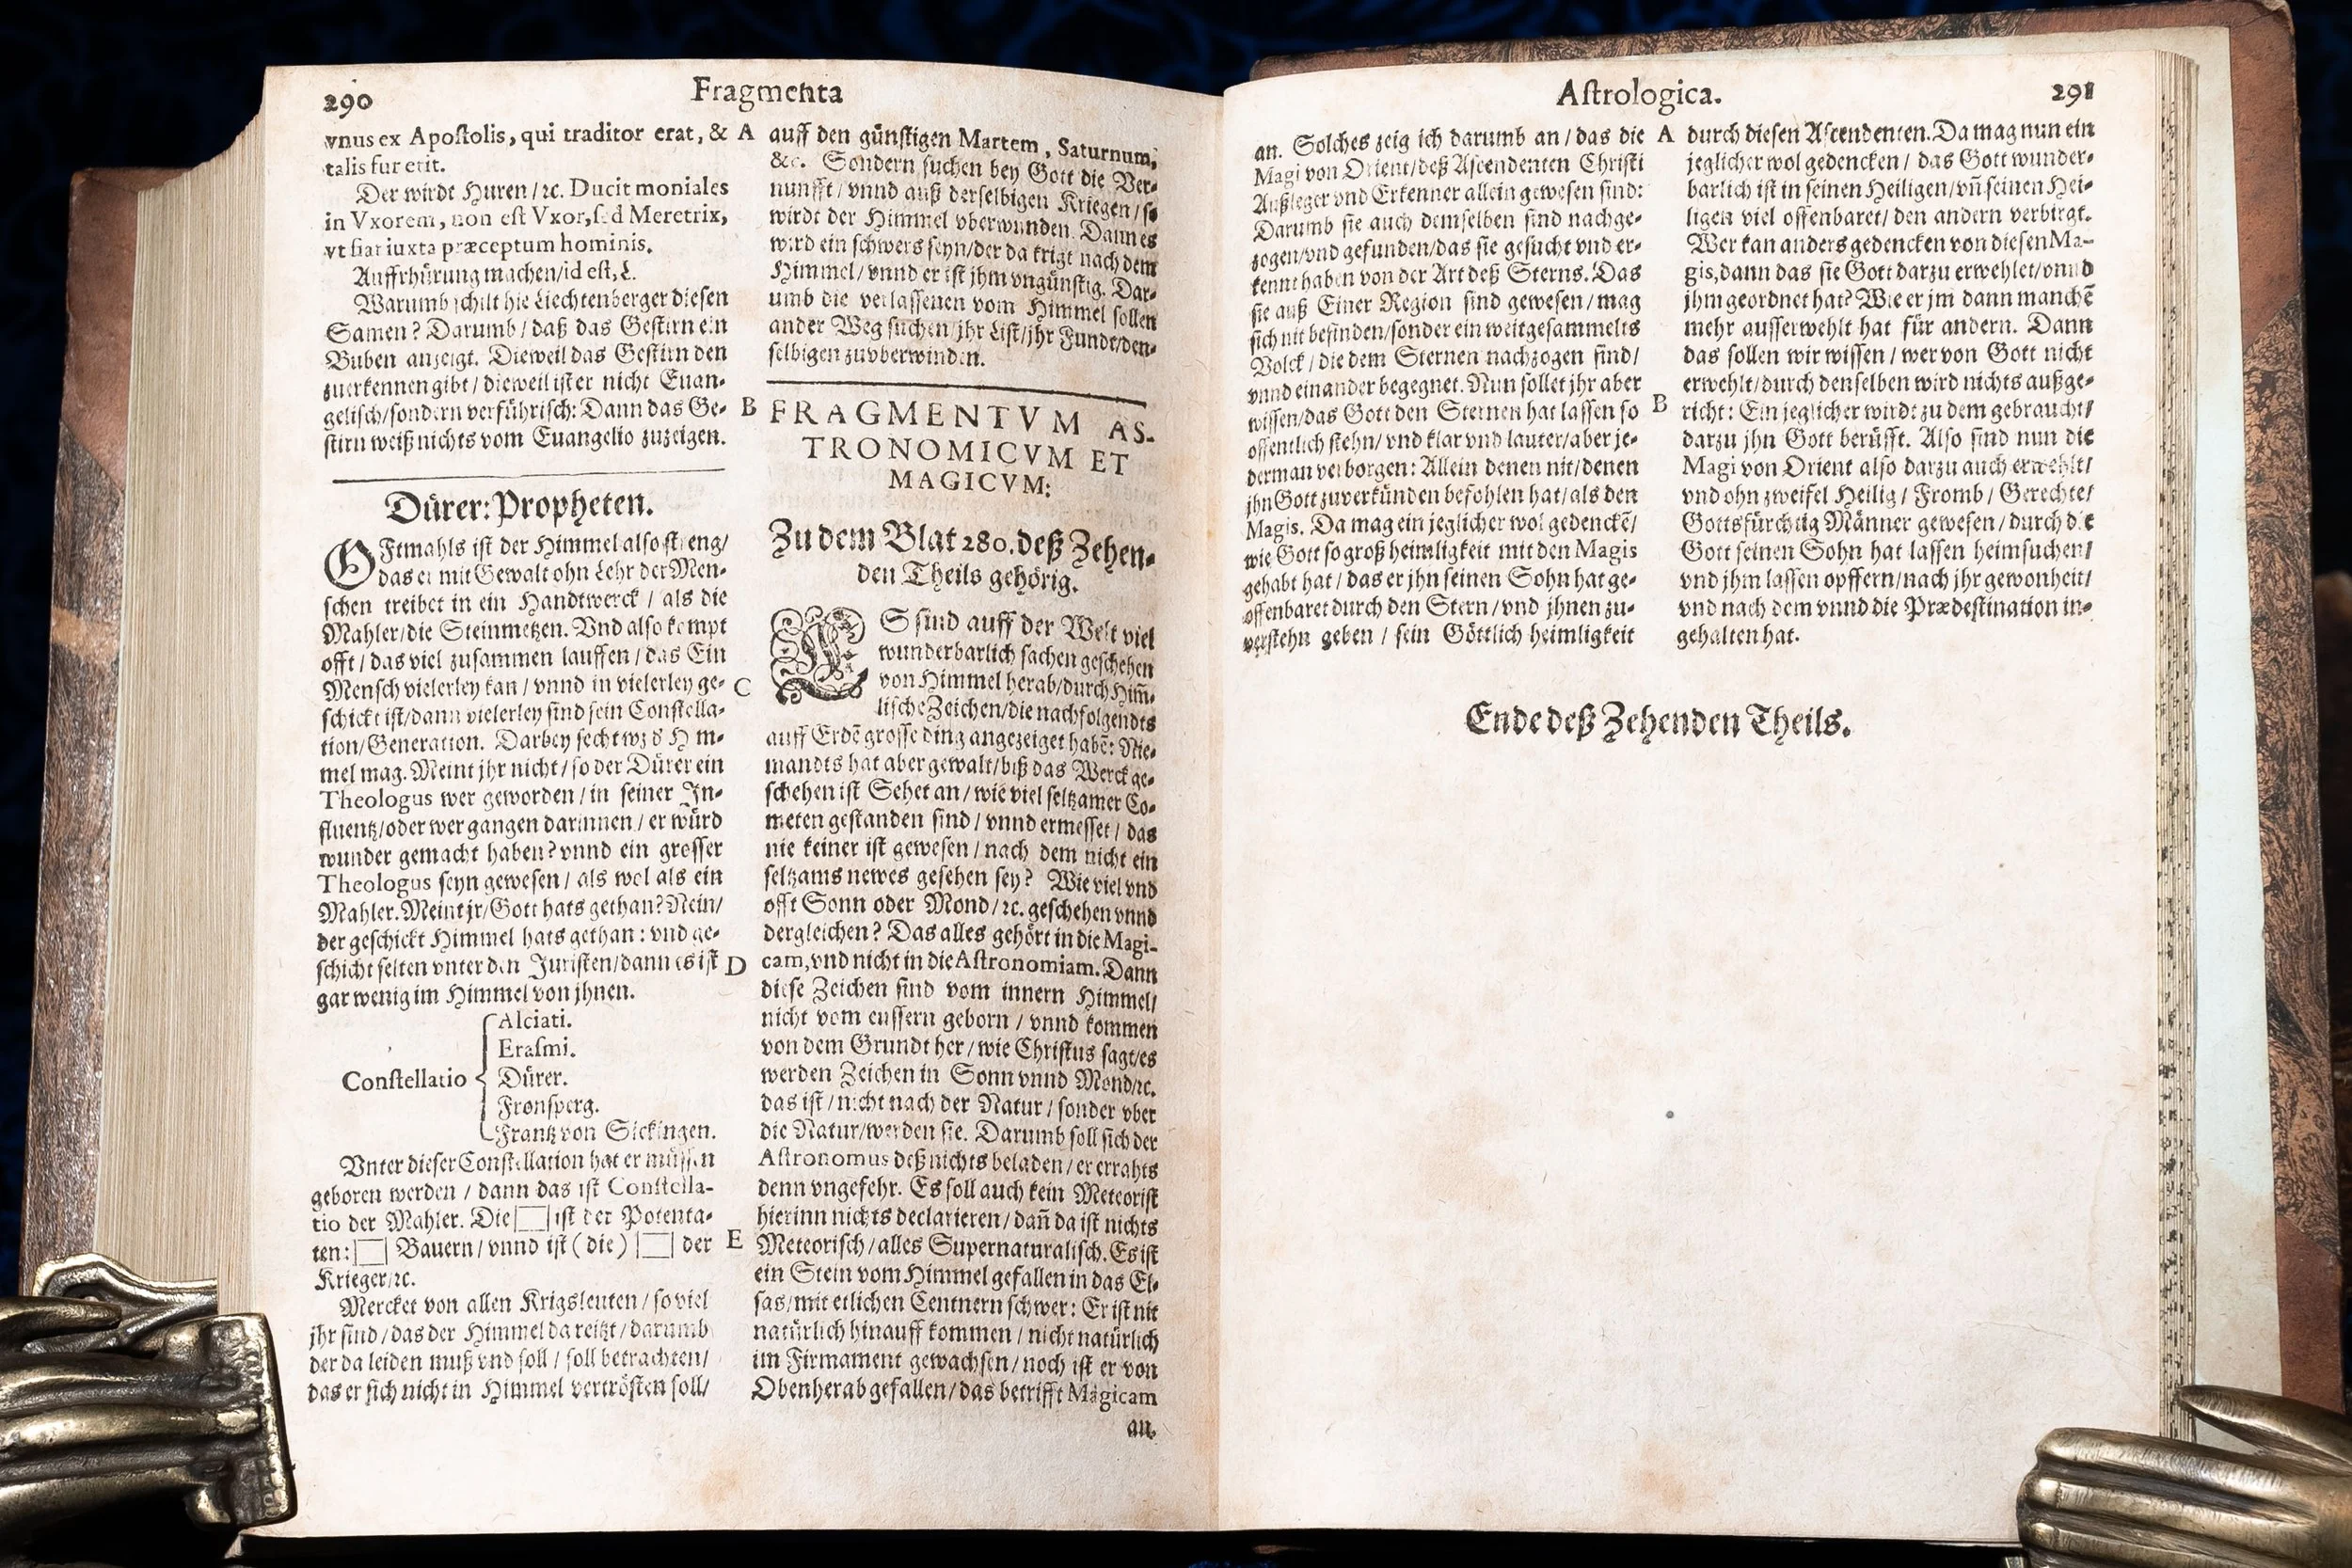 290
Fragmenta
vnus ex Apoſtolis, qui traditor erat, &
talis fur erit.
Der wirdt Huren/ ꝛc. Ducit moniales
in Vxorem, non eſt Vxor, ſed Meretrix,
vt fiat iuxta præceptum hominis.
Auffrhürung machen/id eſt, L.
Warumb ſchilt hie Liechtenberger dieſen
Samen? Darumb/ daß das Geſtirn ein
Buben anzeigt. Dieweil das Geſtirn den
zuerkennen gibt/ dieweil iſt er nicht Euan-
geliſch/ſondern verführiſch: Dann das Ge-
ſtirn weiß nichts vom Euangelio zuzeigen.
Dürer: Propheten.
OFtmahls iſt der Himmel alſo ſtreng/
das er mit Gewalt ohn Lehr der Men-
ſchen treibet in ein Handtwerck/ als die
Mahler/die Steinmetzen. Vnd alſo kompt
offt/ das viel zuſammen lauffen/ das Ein
Menſch vielerley kan/ vnnd in vielerley ge-
ſchickt iſt/dann vielerley ſind ſein Conſtella-
tion/Generation. Darbey ſecht wz d' Him-
mel mag. Meint jhr nicht/ ſo der Dürer ein
Theologus wer geworden/ in ſeiner In-
fluentz/oder wer gangen darinnen/ er würd
wunder gemacht haben? vnnd ein groſſer
Theologus ſeyn geweſen/ als wol als ein
Mahler. Meint jr/Gott hats gethan? Nein/
der geſchickt Himmel hats gethan: vnd ge-
ſchicht ſelten vnter den Juriſten/dann es iſt
gar wenig im Himmel von jhnen.
Conſtellatio
Alciati.
Eraſmi.
Dürer.
Fronſperg.
Frantz von Sickingen.
Vnter dieſer Conſtellation hat er müſſen
geboren werden/ dann das iſt Conſtella-
tio der Mahler. Die iſt der Potenta-
ten: Bauern/ vnnd iſt (die) der
Krieger/ꝛc.
Mercket von allen Krigsleuten/ ſo viel
jhr ſind/das der Himmel da reitzt/ darumb
der da leiden muß vnd ſoll/ ſoll betrachten/
das er ſich nicht in Himmel vertröſten ſoll/
A
B
C
D
E
auff den günſtigen Martem, Saturnum,
&c. Sondern ſuchen bey Gott die Ver-
nunfft/ vnnd auß derſelbigen Kriegen/ ſo
wirdt der Himmel vberwunden. Dann es
wird ein ſchwers ſeyn/der da krigt nach dem
Himmel/ vnnd er iſt jhm vngünſtig. Dar-
umb die verlaſſenen vom Himmel ſollen
ander Weg ſuchen/jhr Liſt/jhr Fundt/den-
ſelbigen zuvberwinden.
FRAGMENTVM AS-
TRONOMICVM ET
MAGICVM:
Zu dem Blat 280. deß Zehen-
den Theils gehörig.
ES ſind auff der Welt viel
wunderbarlich ſachen geſchehen
von Himmel herab/durch Him̃-
liſche Zeichen/die nachfolgendts
auff Erdẽ groſſe ding angezeiget habẽ: Nie-
mandts hat aber gewalt/biß das Werck ge-
ſchehen iſt Sehet an/ wie viel ſeltzamer Co-
meten geſtanden ſind/ vnnd ermeſſet/ das
nie keiner iſt geweſen/ nach dem nicht ein
ſeltzams newes geſehen ſey? Wie viel vnd
offt Sonn oder Mond/ ꝛc. geſchehen vnnd
dergleichen? Das alles gehört in die Magi-
cam, vnd nicht in die Aſtronomiam. Dann
dieſe Zeichen ſind vom innern Himmel/
nicht vom euſſern geborn/ vnnd kommen
von dem Grundt her/ wie Chriſtus ſagt/es
werden Zeichen in Sonn vnnd Mond/ꝛc.
das iſt/ nicht nach der Natur/ ſonder vber
die Natur/werden ſie. Darumb ſoll ſich der
Aſtronomus deß nichts beladen/ er errahts
denn vngefehr. Es ſoll auch kein Meteoriſt
hierinn nichts declarieren/ dañ da iſt nichts
Meteoriſch/ alles Supernaturaliſch. Es iſt
ein Stein vom Himmel gefallen in das El-
ſas/mit etlichen Centnern ſchwer: Er iſt nit
natürlich hinauff kommen/ nicht natürlich
im Firmament gewachſen/ noch iſt er von
Obenherab gefallen/ das betrifft Magicam
an.
Aſtrologica.
291
an. Solches zeig ich darumb an/ das die
Magi von Orient/deß Aſcendenten Chriſti
Außleger vnd Erkenner allein geweſen ſind:
Darumb ſie auch demſelben ſind nachge-
zogen/vnd gefunden/das ſie geſucht vnd er-
kennt haben von der Art deß Sterns. Das
ſie auß Einer Region ſind geweſen/ mag
ſich nit befinden/ſonder ein weitgeſammelts
Volck/ die dem Sternen nachzogen ſind/
vnnd einander begegnet. Nun ſollet jhr aber
wiſſen/das Gott den Sternen hat laſſen ſo
offentlich ſtehn/ vnd klar vnd lauter/aber je-
derman verborgen: Allein denen nit/denen
jhn Gott zuverkünden befohlen hat/als den
Magis. Da mag ein jeglicher wol gedenckẽ/
wie Gott ſo groß heimligkeit mit den Magis
gehabt hat/ das er jhn ſeinen Sohn hat ge-
offenbaret durch den Stern/ vnd jhnen zu-
verſtehn geben/ ſein Göttlich heimligkeit
A
B
durch dieſen Aſcendenten. Da mag nun ein
jeglicher wol gedencken/ das Gott wunder-
barlich iſt in ſeinen Heiligen/ vñ ſeinen Hei-
ligen viel offenbaret/ den andern verbirgt.
Wer kan anders gedencken von dieſen Ma-
gis, dann das ſie Gott darzu erwehlet/vnnd
jhm geordnet hat? Wie er jm dann manchẽ
mehr auſſerwehlt hat für andern. Dann
das ſollen wir wiſſen/ wer von Gott nicht
erwehlt/durch denſelben wird nichts außge-
richt: Ein jeglicher wirdt zu dem gebraucht/
darzu jhn Gott berüfft. Alſo ſind nun die
Magi von Orient alſo darzu auch erwehlt/
vnd ohn zweifel Heilig/ Fromb/ Gerechte/
Gottsfürchtig Männer geweſen/ durch die
Gott ſeinen Sohn hat laſſen heimſuchen/
vnd jhm laſſen opffern/nach jhr gewonheit/
vnd nach dem vnnd die Prædeſtination in-
gehalten hat.
Ende deß Zehenden Theils.